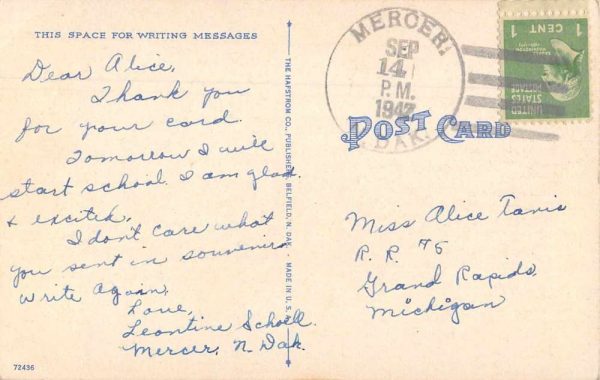 THIS SPACE FOR WRITING MESSAGES
Dear Alice,
Thank you
for your card.
Tomorrow I will
start school. I am glad
& excited.
I don't care what
you sent in souveniers
Write Again,
Love,
Leontine Schoell.
Mercer, N. Dak.
72436
THE HAFSTROM CO., PUBLISHERS, BELFIELD, N. DAK. - MADE IN U. S. A.
MERCER,
SEP
14
P.M.
1947
DAK.
1 CENT 1
UNITED
STATES
POSTAGE
POST CARD
Miss Alice Tanis
R. R. #5
Grand Rapids
Michigan